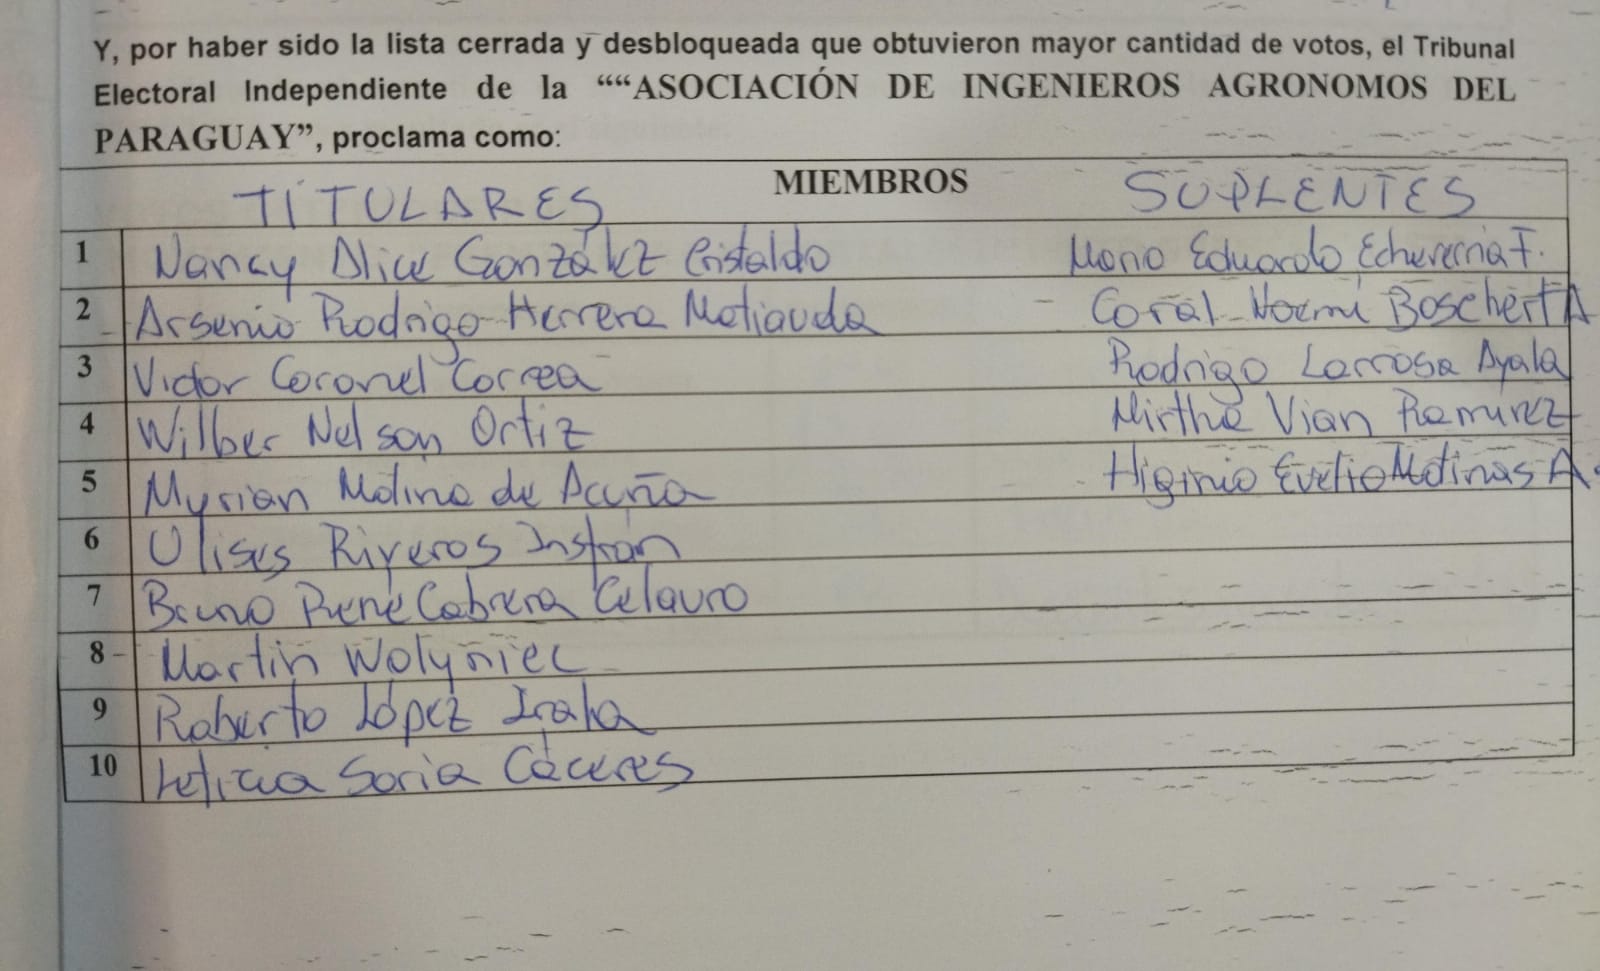 Y, por haber sido la lista cerrada y desbloqueada que obtuvieron mayor cantidad de votos, el Tribunal
Electoral Independiente de la ““ASOCIACIÓN DE INGENIEROS AGRONOMOS DEL
PARAGUAY”, proclama como:
TITULARES MIEMBROS SUPLENTES
1 Nancy Alice González Cristaldo Mario Eduardo Echeverria F.
2 Arsenio Rodrigo Herrera Matiauda Coral Noemi Boschert A
3 Victor Coronel Correa Rodrigo Larrosa Ayala
4 Wilber Nelson Ortiz Mirtha Vian Ramirez
5 Myrian Molina de Acuña Higinio Evelio Molinas A.
6 Ulises Riveros Insfrán
7 Bruno René Cabrera Celauro
8 Martin Wolyniec
9 Roberto López Irala
10 Leticia Soria Cáceres